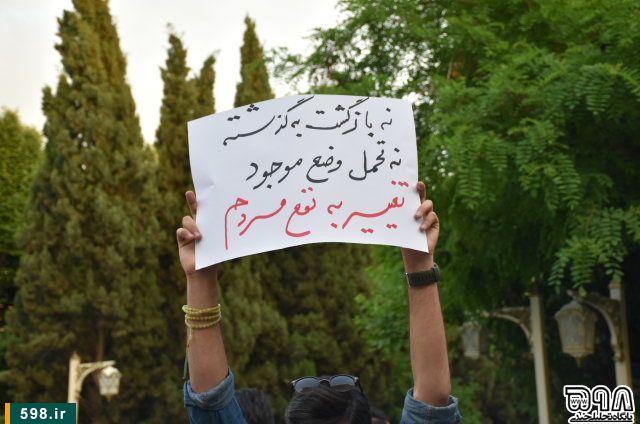 نه بازگشت به گذشته
نه تحمل وضع موجود
تغییر به نفع مردم
598.ir